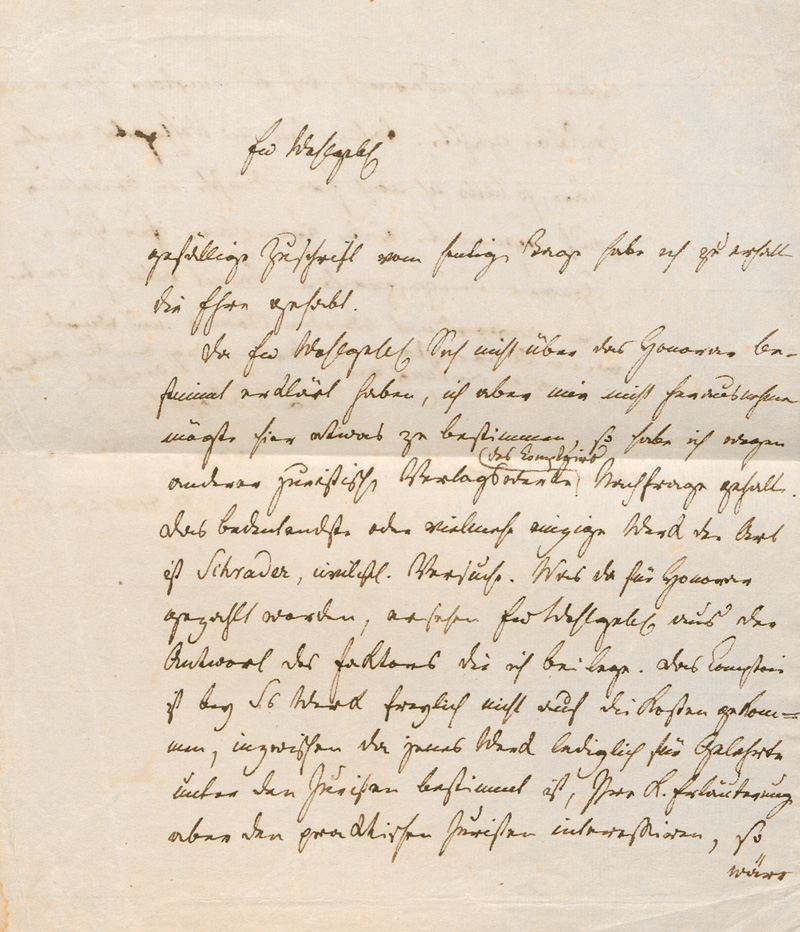 Ew Wohlgeb
gefällige Zuschrift vom heutig. Tage habe ich zu erhalt
die Ehre gehabt.
Da Ew Wohlgeb Sich nicht über das Honorar be-
stimmt erklärt haben, ich aber mir nicht herausnehme
mögte hier etwas zu bestimmen, so habe ich wegen
(des Comptoirs
anderer juristisch. Verlagswerke) Nachfrage gehalt.
Das bedeutendste oder vielmehr einzige Werk der Art
ist Schrader, civilist. Versuche. Was da für Honorar
gezahlt worden, ersehen Ew Wohlgeb aus der
Antwort des Faktors die ich beilege. Das Comptoir
ist bey Werk freylich nicht auf die Kosten gekom-
men, inzwischen da jenes Werk lediglich für Gelehrte
unter den Juristen bestimmt ist, Ihre K. Erläuterung
aber den practischen Juristen interessiren, so
wäre